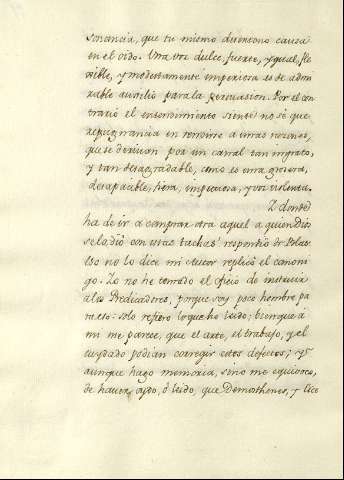 sonancia, que tu mismo disentono causa
en el oido. Una voz dulce, fuerte, ygual, fle
xible, y modestamente imperiosa es de admi
rable auxilio para la persuasion. Por el con
trario el entendimiento siente no sé que
repugnancia en rendirse à unas razones,
que se derivan por un canal tan ingrato,
y tan desagradable, como es una grosera,
desapacible, fiera, imperiosa, y voz violenta.
Y donde
ha de ir à comprar otra aquel a quien Dios
se la dió con essas tachas? respondió Dn Polac
Esso no lo dice mi Autor replicó el canoni
go. Yo no he tomado el oficio de instruir
a los Predicadores, porque soy poco hombre pa
ra esso: solo refiero lo que he leido; bien que à
mi me parece, que el arte, el trabajo, y el
cuydado podian corregir estos defectos; y
aunque hago memoria, sino me equivoco,
de haver oydo, ò leido, que Demosthenes, y Cice